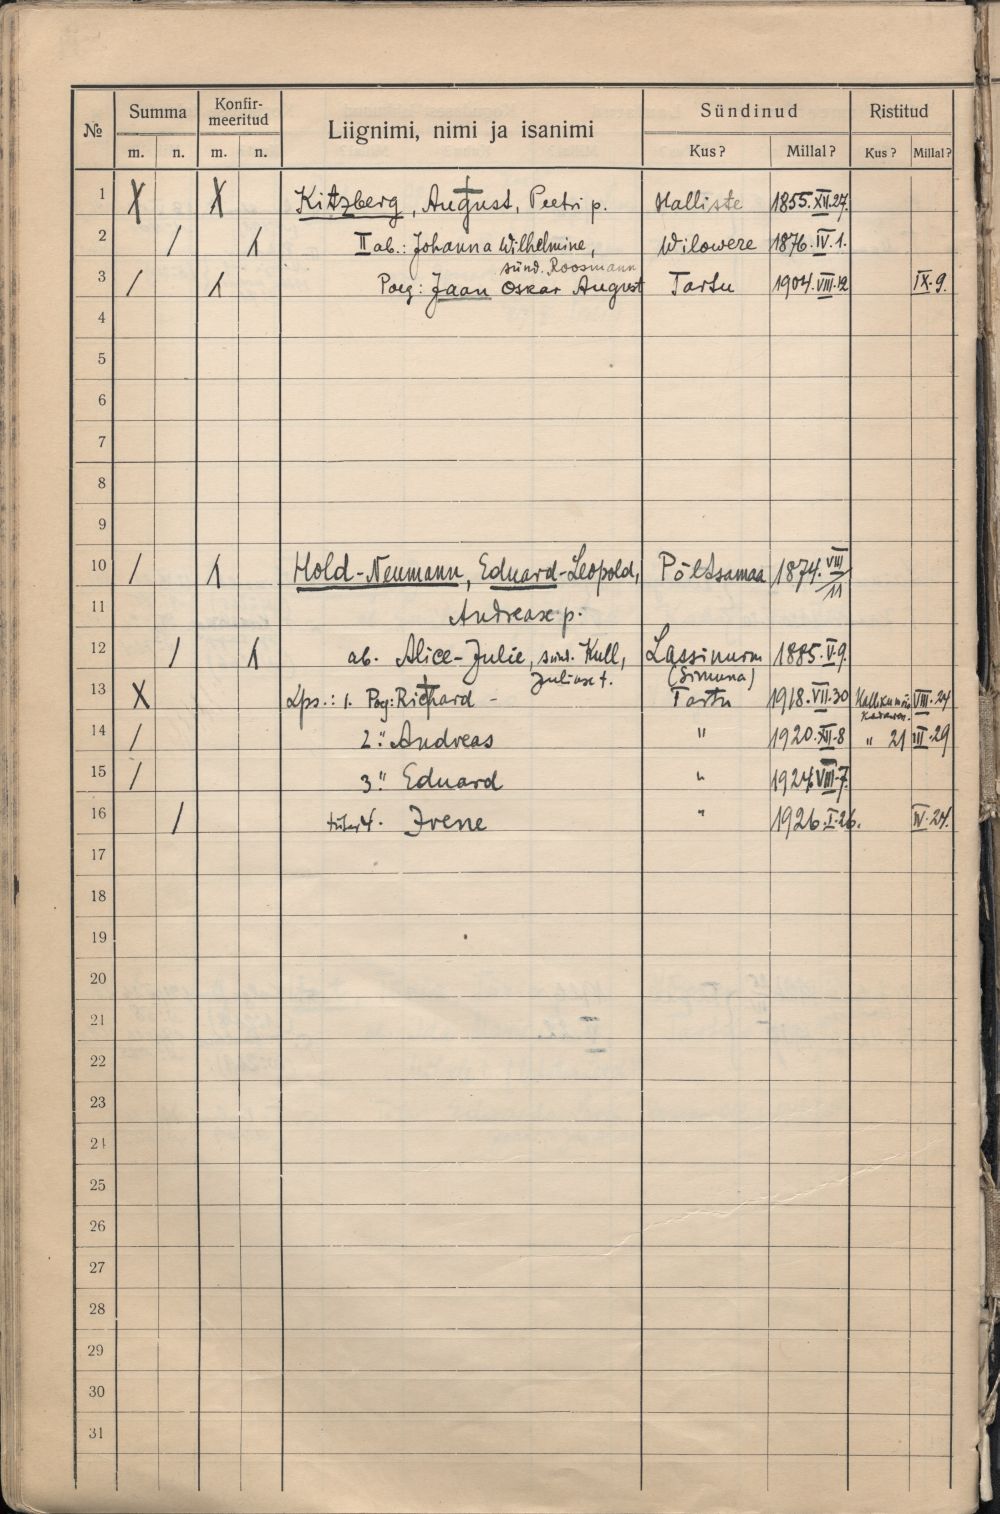 № Summa Konfir-meeritud Liignimi, nimi ja isanimi Sündinud Ristitud
m. n. m. n. Kus? Millal? Kus? Millal?
1 X X Kitzberg, August, Peetri p. Halliste 1855.XII.27.
2 / 1 II ab.: Johanna Wilhelmine, Wilowere 1876.IV.1.
sünd. Roosmann
3 / 1 Poeg: Jaan Oskar August Tartu 1904.VIII.12 IX.9.
4
5
6
7
8
9
10 / 1 Hold-Neumann, Eduard-Leopold, Põltsamaa 1874.VIII/11
11 Andrease p.
12 / 1 ab. Alice-Julie, sünd. Kull, Lassinurm 1885.V.9.
Juliuse t. (Simuna)
13 X Lps.: 1. Poeg: Richard - Tartu 1918.VII.30 VIII.24
14 / 2. " Andreas " 1920.XII.8 " 21 III.29
15 / 3 " Eduard " 1924.VIII.7.
16 / tütar 4. Irene " 1926.I.26. IV.24.
17
18
19
20
21
22
23
24
25
26
27
28
29
30
31